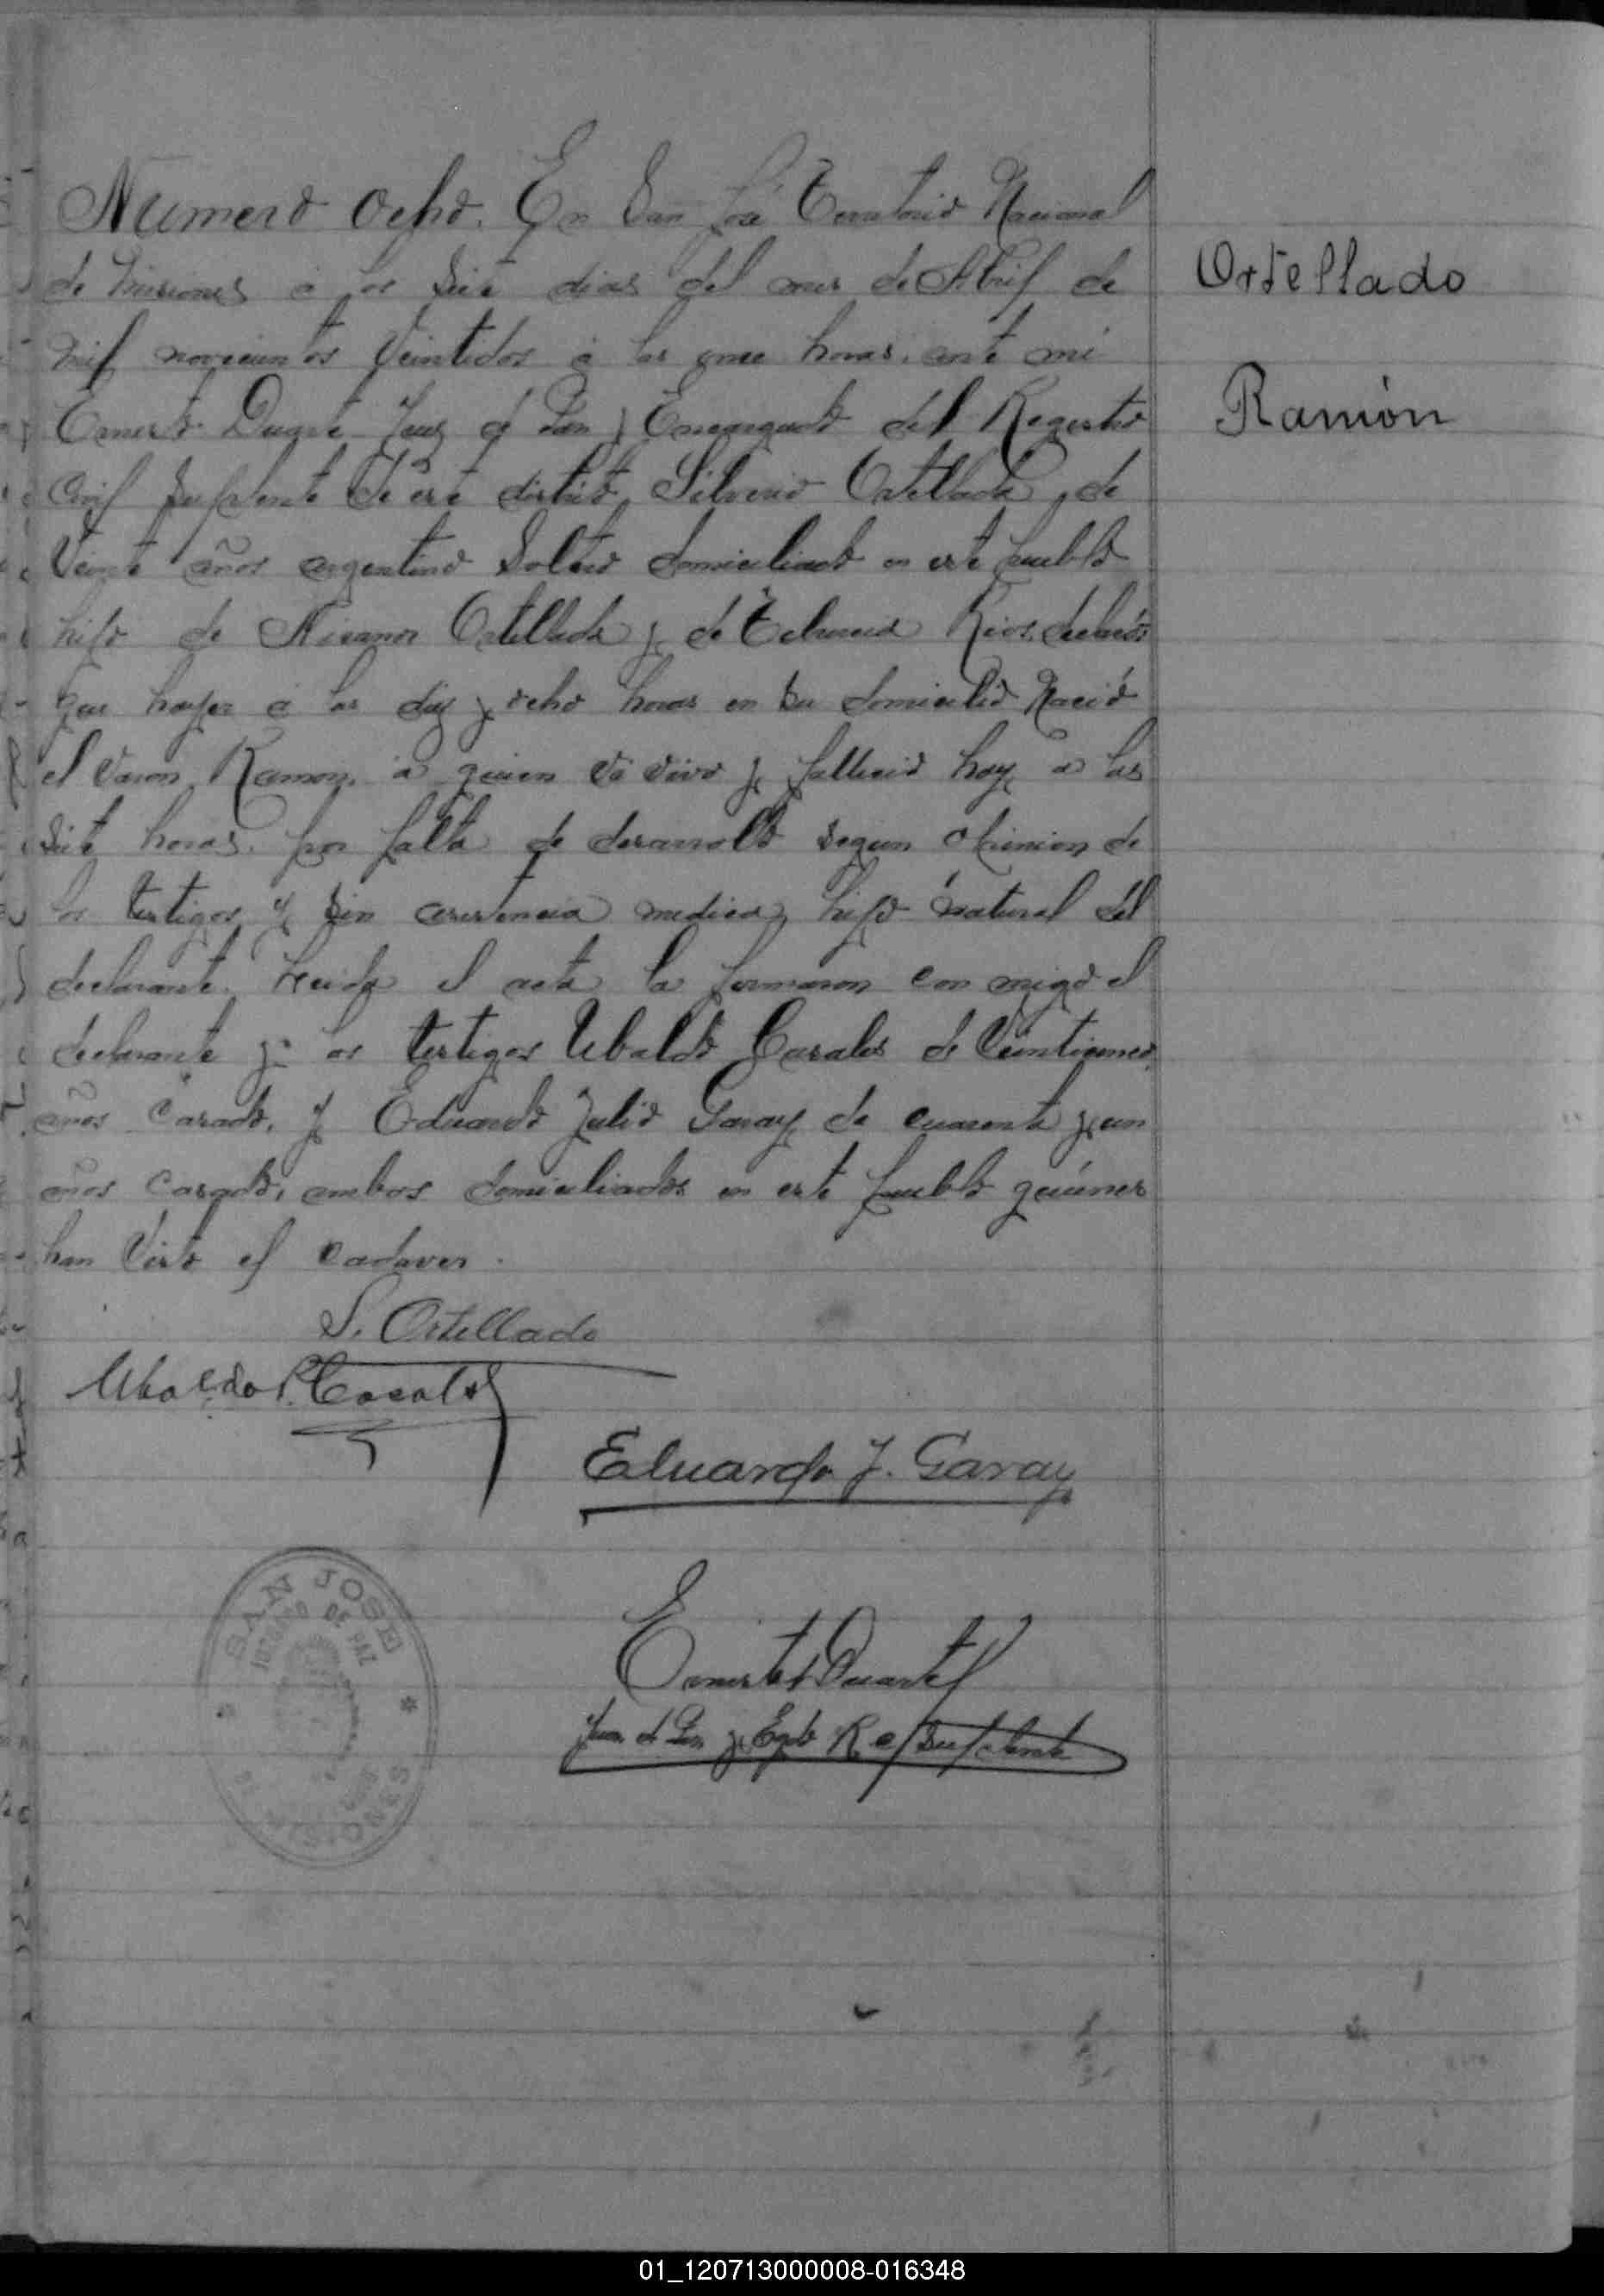 Numero Ocho. En San José Territorio Nacional
de Misiones á los siete dias del mes de Abril de
mil novecientos veintidos á las once horas, ante mi
Ernesto Duarte Juez de Paz y Encargado del Registro
Civil Suplente de este distrito, Silverio Ortellado, de
Veinte años argentino Soltero domiciliado en este pueblo
hijo de Nicanor Ortellado y de Rios, declaró:
que hayer á las diez y ocho horas en su domicilio Nació
el varon Ramon, a quien vó vivo y fallecio hoy a las
siete horas, por falta de desarrollo segun opinion de
los testigos y sin asistencia medica, hijo natural del
declarante. Leida el acta la firmaron con migo el
declarante y los testigos Ubaldo Casales de Veinticinco
años Casado, y Eduardo Julio Garay de cuarenta y un
años Casado, ambos domiciliados en este pueblo quiénes
han visto el cadaver.
Ortellado
Ramón
S. Ortellado
Ubaldo P. Casales
Eduardo J. Garay
Ernesto Duarte
Juez de Paz y Egdo R C Suplente
SAN JOSE
JUZGADO DE PAZ
MISIONES
01_120713000008-016348